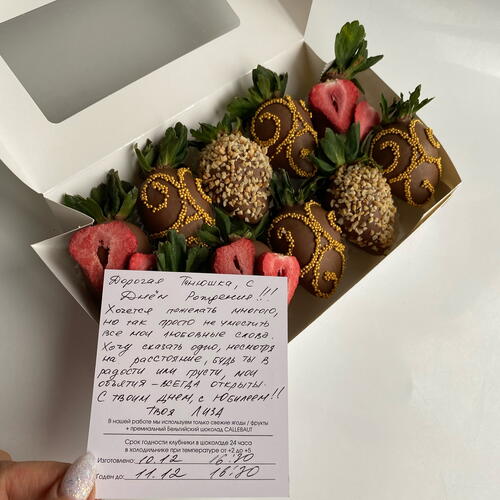 Дорогая Танюшка, с
Днём Рождения!!!
Хочется пожелать многого,
но так просто не уместить
все мои любовные слова.
Хочу сказать одно, несмотря
на расстояние, будь ты в
радости или грусти, мои
объятия – ВСЕГДА открыты.
С твоим днем, с Юбилеем!!
Твоя Лиза
В нашей работе мы используем только свежие ягоды / фрукты
+ премиальный Бельгийский шоколад CALLEBAUT
Срок годности клубники в шоколаде 24 часа
в холодильнике при температуре от +2 до +5
Изготовлено: 10.12 16:30
Годен до: 11.12 16:30